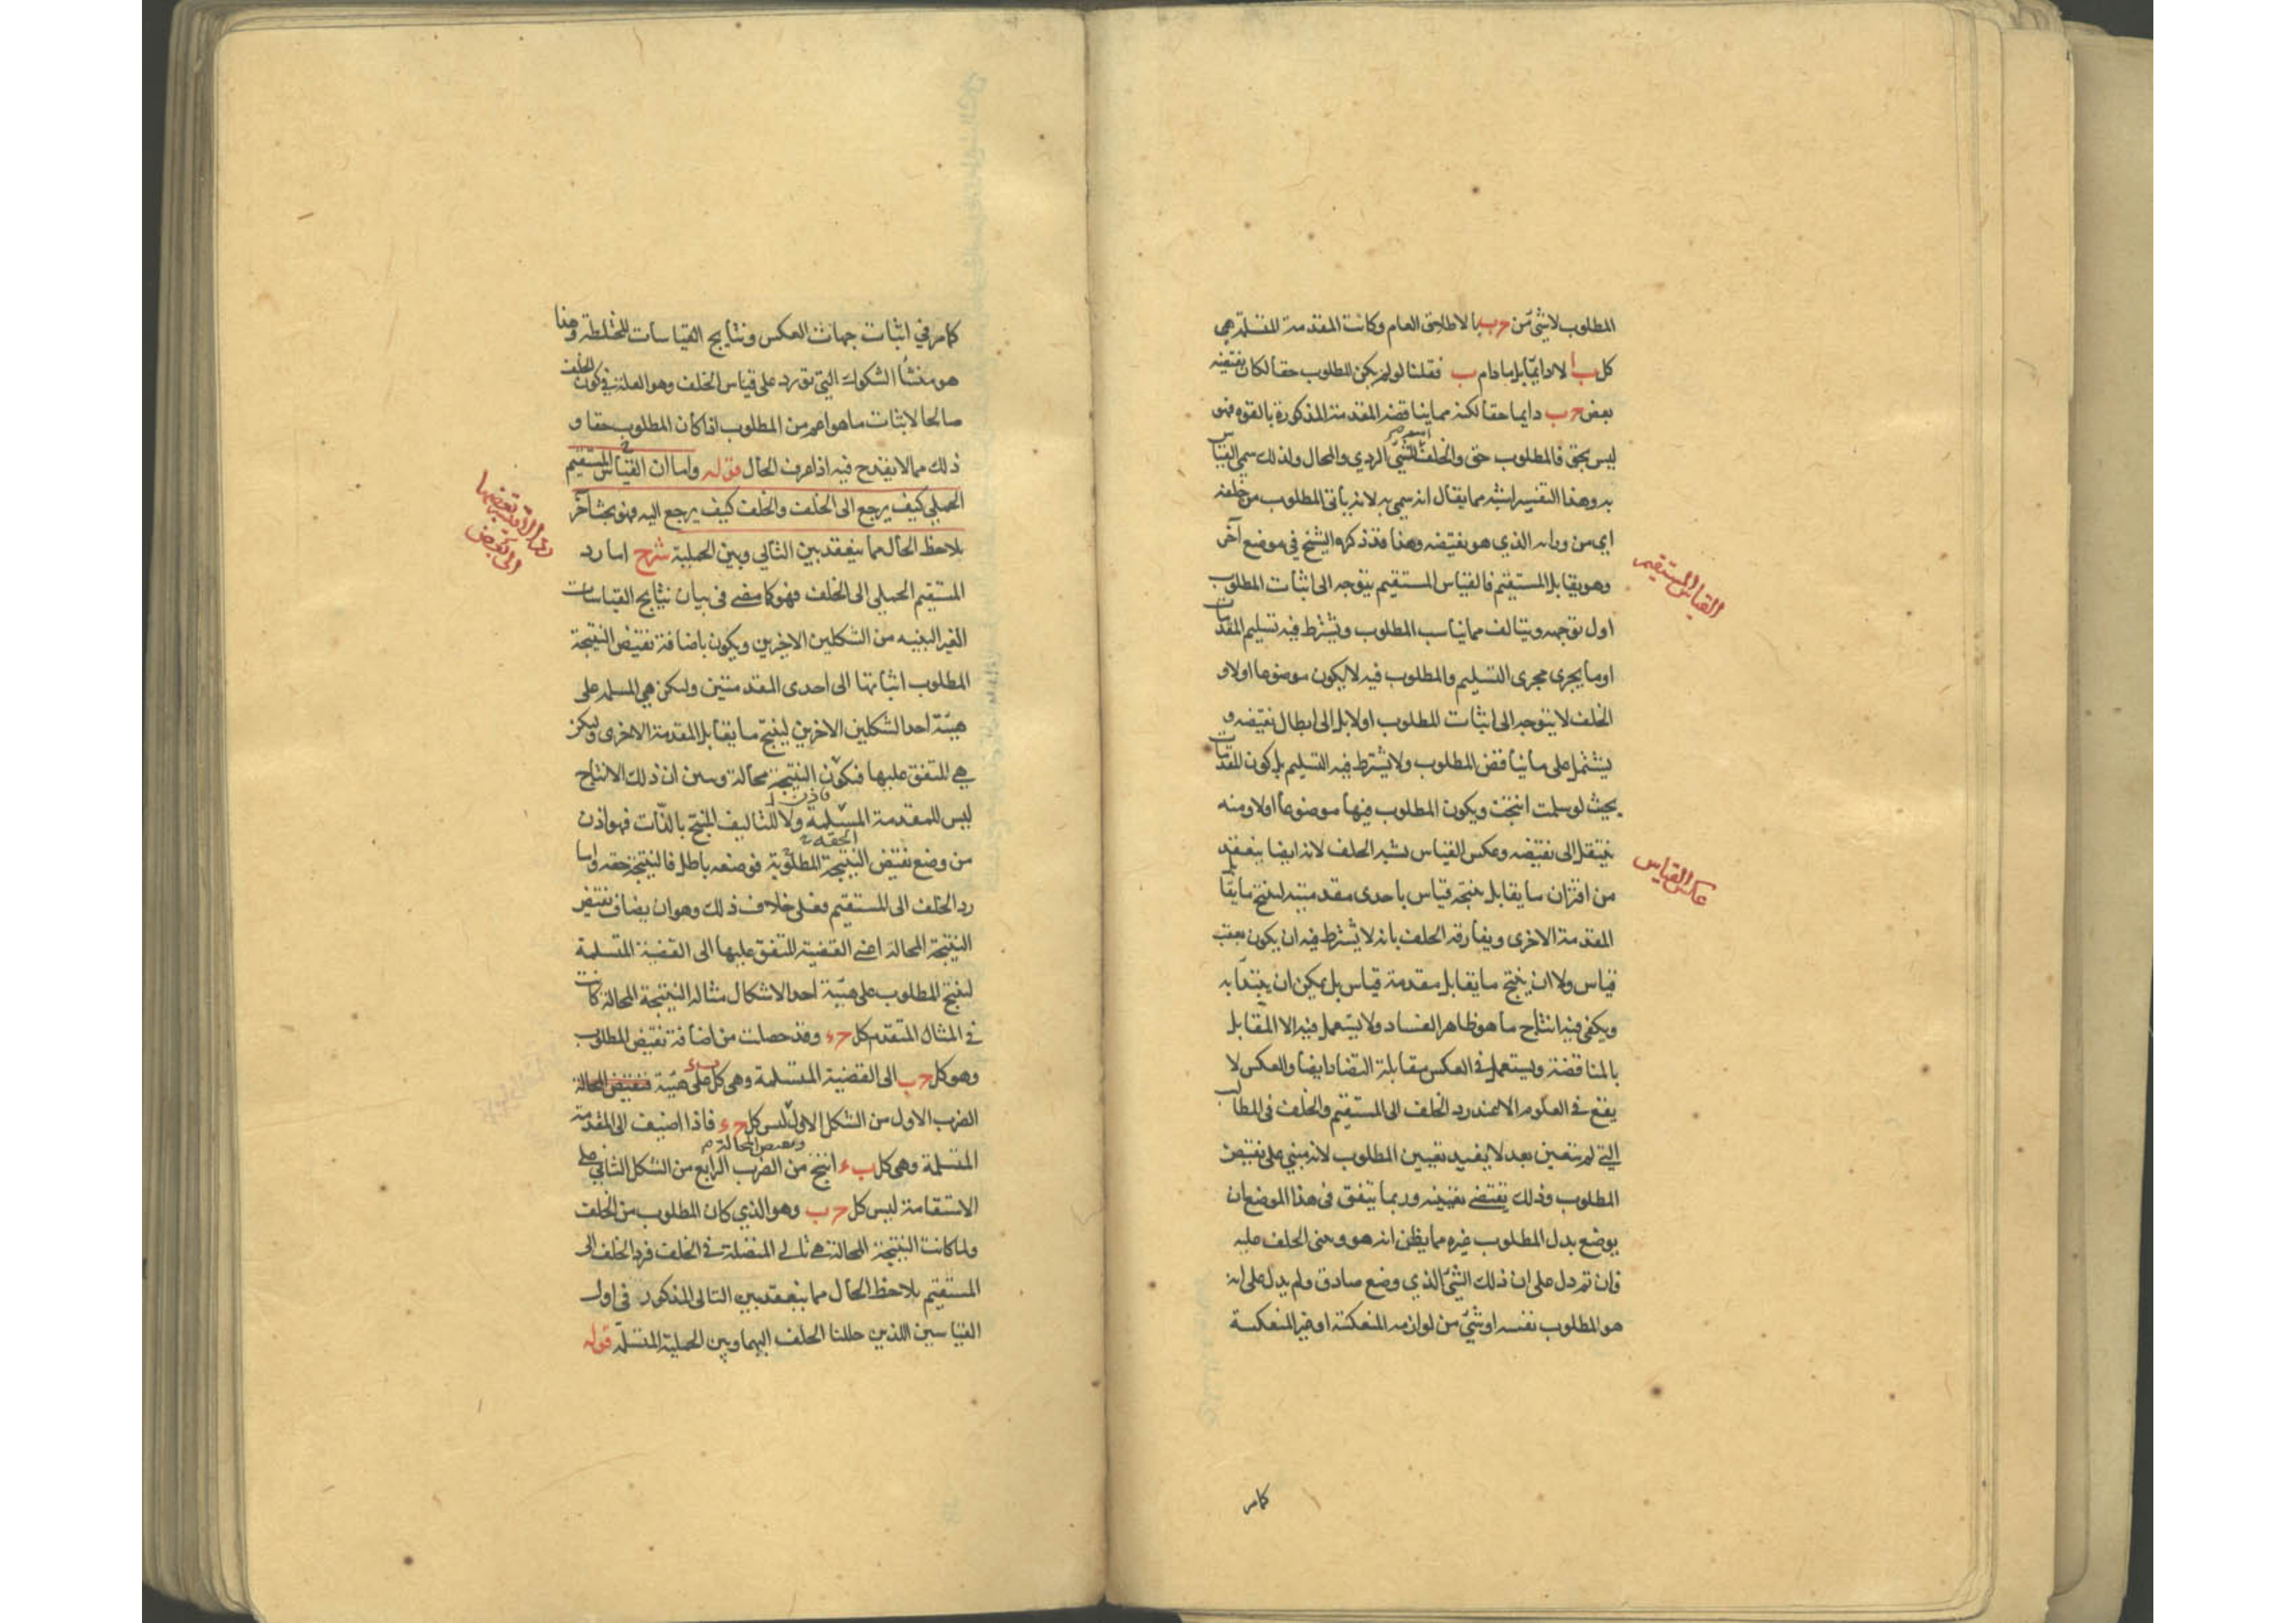 المطلوب لا شئ من حـ ب بالاطلاق العام وكانت المقدمة المتسلمة هى
كل ب ا لا دائما بل ما دام ب فقلنا لو لم يكن المطلوب حقا لكان نقيضه
بعض حـ ب دايما حقا لكنه مما يناقضه المقدمة المذكورة بالقوه فهو
ليس بحق فالمطلوب حق والخلف الشئ الردي والمحال ولذلك سمى القياس
به وهذا التفسير اشبه مما يقال انه سمى به لانه ياتى المطلوب من خلفه
اى من ورائه الذي هو نقيضه وهذا قد ذكره الشيخ في موضع آخر
وهو يقابل المستقيم فالقياس المستقيم يتوجه الى اثبات المطلوب
القياس المستقيم
اول توجهه ويتالف مما يناسب المطلوب ويشترط فيه تسليم المقدمات
او ما يجرى مجرى التسليم والمطلوب فيه لا يكون موضوعا اولا و
الخلف لا يتوجه الى اثبات المطلوب اولا بل الى ابطال نقيضه و
يشتمل على ما يناقض المطلوب ولا يشترط فيه التسليم بل كون المقدمات
بحيث لو سلمت انتجت ويكون المطلوب فيها موضوعا اولا ومنه
ينتقل الى نقيضه وعكس القياس يشبه الخلف لانه ايضا ينعقد
عكس القياس
من اقتران ما يقابل نتيجة قياس باحدى مقدمتيه لينتج ما يقابل
المقدمة الاخرى ويفارقه الخلف بانه لا يشترط فيه ان يكون بعقب
قياس ولا ان ينتج ما يقابل مقدمة قياس بل يمكن ان يبتدأ به
ويكفى فيه انتاج ما هو ظاهر الفساد ولا يستعمل فيه الا المقابل
بالمناقضة ويستعمل في العكس مقابلة التضاد ايضا والعكس لا
يقع في العلوم الا عند رد الخلف الى المستقيم والخلف فى المطالب
التي لم تتعين بعد لا يفيد تعيين المطلوب لانه مبني على نقيض
المطلوب وذلك يقتضي تعيينه وربما يتفق فى هذا الموضع ان
يوضع بدل المطلوب غيره مما يظن انه هو وبنى الخلف عليه
فان تم دل على ان ذلك الشئ الذي وضع صادق ولم يدل على انه
هو المطلوب نفسه او شئ من لوازمه المنعكسة او غير المنعكسة
كما مر
كما مر في اثبات جهات العكس ونتايج القياسات المختلطة وهذا
هو منشأ الشكوك التي تورد على قياس الخلف وهو العلة في كون الخلف
صالحا لاثبات ما هو اعم من المطلوب اذا كان المطلوب حقا و
ذلك مما لا يقدح فيه اذا عرف الحال قوله واما ان القياس المستقيم
الحملي كيف يرجع الى الخلف والخلف كيف يرجع اليه فهو بحث آخر
يلاحظ الحال مما ينعقد بين التالي وبين الحملية شرح اما رد
المستقيم الحملي الى الخلف فهو كما مضى فى بيان نتايج القياسات
الغير البينه من الشكلين الاخيرين ويكون باضافة نقيض النتيجة
المطلوب اثباتها الى احدى المقدمتين ولكن هي المسلمة على
هيئة احد الشكلين الاخرين لينتج ما يقابل المقدمة الاخرى ولكن
هي المتفق عليها فتكون النتيجة محالة وبين ان ذلك الانتاج
ليس للمقدمة المسلمة ولا للتاليف المنتج بالذات فهو اذن
من وضع نقيض النتيجة المطلوبة فوضعه باطل فالنتيجة حقه واما
رد الخلف الى المستقيم فعلى خلاف ذلك وهو ان يضاف نقيض
النتيجة المحالة اعنى القضية المتفق عليها الى القضية المتسلمة
لينتج المطلوب على هيئة احد الاشكال مثاله النتيجة المحالة كانت
في المثال المتقدم كل حـ ء وقد حصلت من اضافة نقيض المطلوب
وهو كل حـ ب الى القضية المتسلمة وهى كل ب ء على هيئة فنقيض المحالة
الضرب الاول من الشكل الاول ليس كل حـ ء فاذا اضيف الى المقدمة
ونقيض المحالة
المتسلمة وهى كل ب ء انتج من الضرب الرابع من الشكل الثاني على
الاستقامة ليس كل حـ ب وهو الذي كان المطلوب من الخلف
ولما كانت النتيجة المحالة هى تالي المتصلة في الخلف فرد الخلف الى
المستقيم يلاحظ الحال مما ينعقد بين التالى المذكور فى اول
القياسين اللذين حللنا الخلف اليهما وبين الحملية المتسلمة قوله